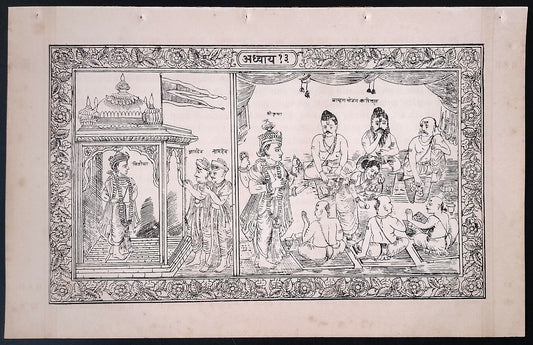 अध्याय १३
विठोबा
ज्ञानदेव नामदेव
श्रीकृष्ण
ब्राह्मण भोजन करितात